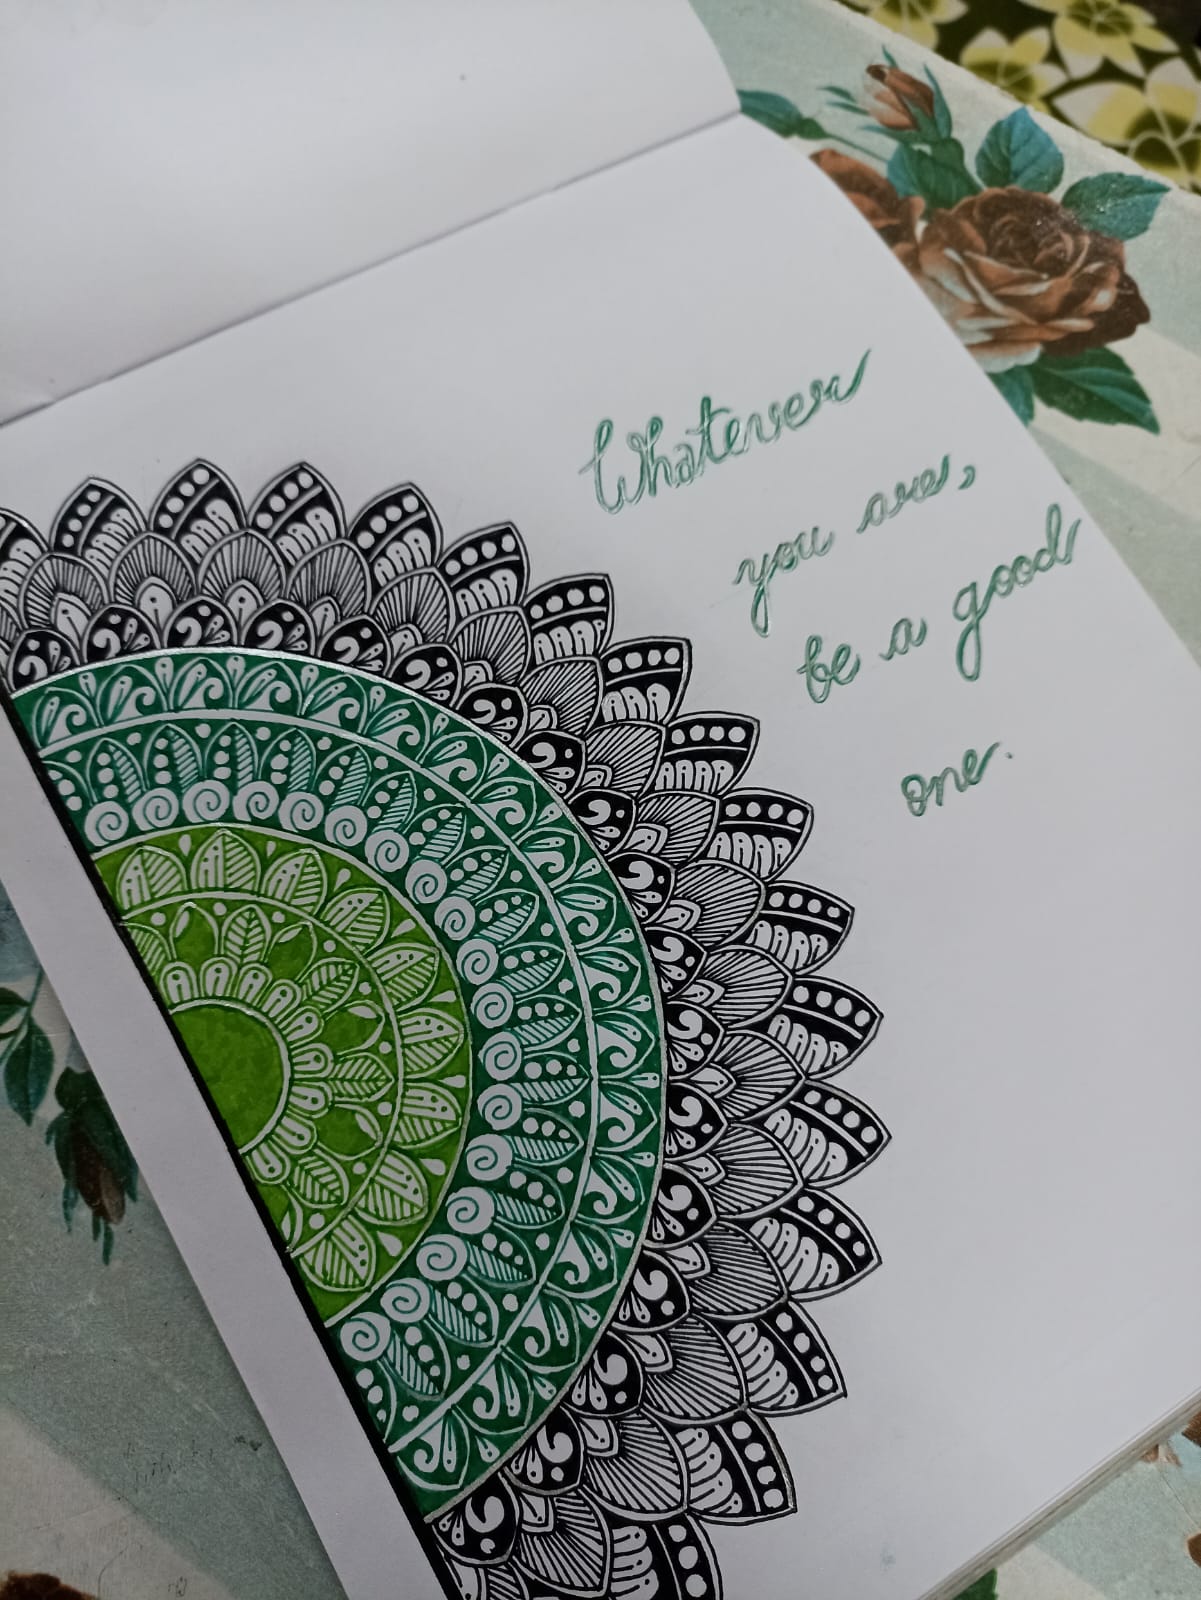 Whatever
you are,
be a good
one.